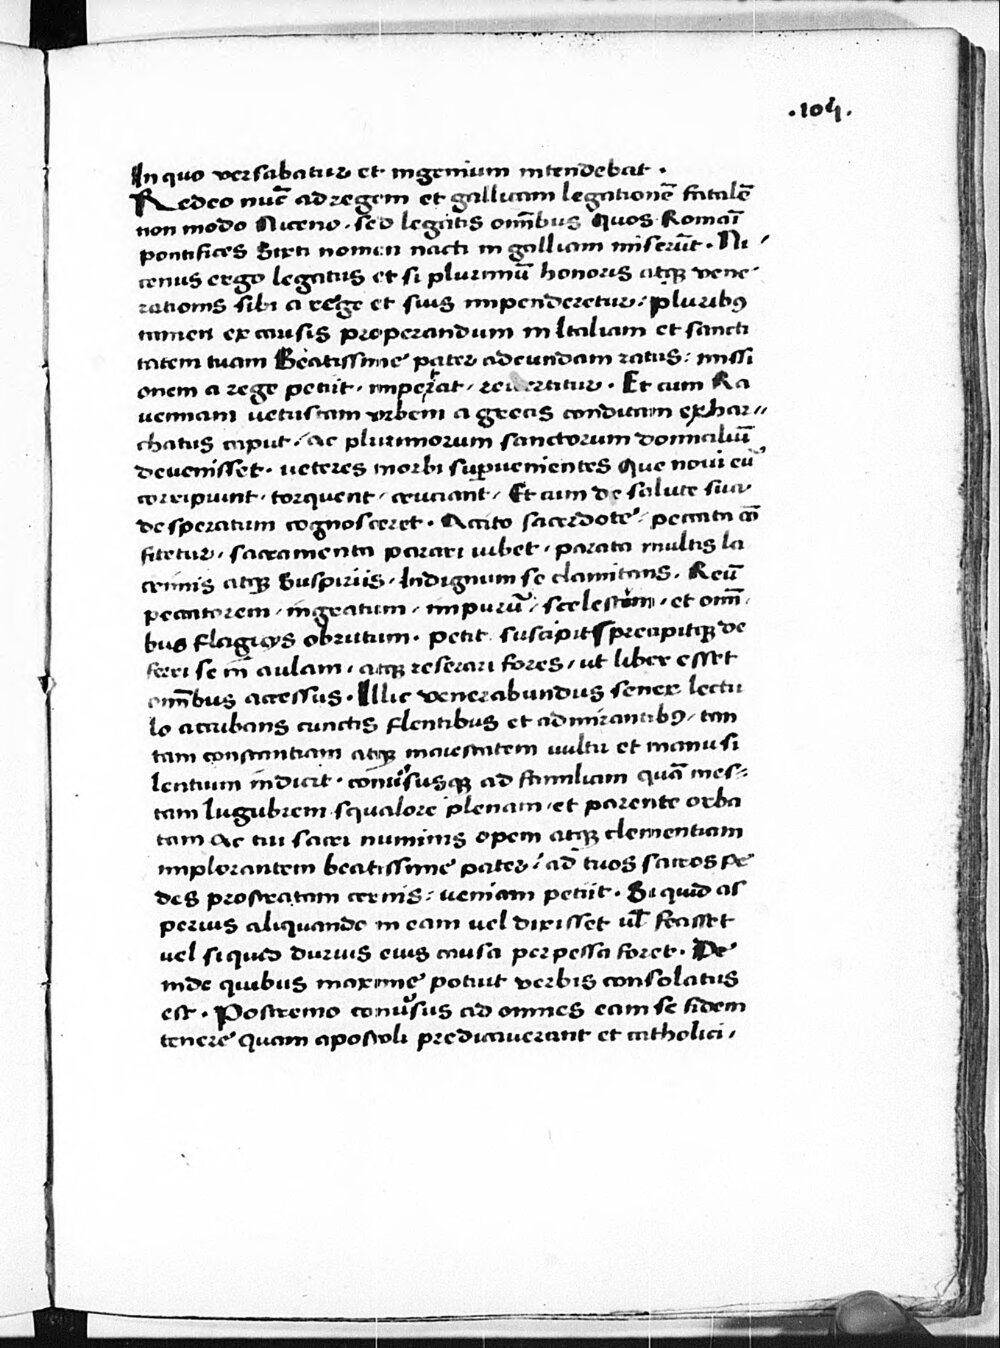 .104.
In quo versabatur et ingenium intendebat .
Redeo nūc ad regem et gallicam legationē fatalē
non modo Niceno . sed legatis om̄ibus Quos Romāi
pontifices Sixti nomen nacti in galliam miserūt . Ni
cenus ergo legatus et si plurimū honoris atqꝫ vene
rationis sibi a rege et suis impenderetur . pluribꝰ
tamen ex causis properandum in Italiam et sancti
tatem tuam Beatissime pater adeundam ratus : missi
onem a rege petiit . impetrat . revertitur . Et cum Ra
vennam vetustam vrbem a grecis conditam exhar
chatus caput . ac plurimorum sanctorum domiciliū
devenisset . veteres morbi suꝑvenientes Que novi eū
corripiunt . torquent . cruciant . Et cum de salute sua
desperatum cognosceret . Accito sacerdote . peccata cō
fitetur . sacramenta parari iubet . parata multis la
crimis atqꝫ Suspiriis . Indignum se clamitans . Reū
peccatorem . ingratum . impurū . scelestum . et om̄i
bus flagicijs obrutum . petit suscipit precipitqꝫ de
ferri se in aulam . atqꝫ reserari fores . ut liber esset
om̄ibus accessus . Illic venerabundus senex lectu
lo accubans cunctis flentibus et admirantibꝰ . tan
tam constantiam atqꝫ maiestatem vultu et manu si
lentium indicit . conuersusqꝫ ad familiam quā mes
tam lugubrem squalore plenam . et parente orba
tam Ac tui sacri numinis opem atqꝫ clementiam
implorantem beatissime pater : ad tuos sacros pe
des prostratam cernis : veniam petiit . Si quid as
perius aliquando in eam vel dixisset ul̄ fecisset
vel si quid durius eius causa perpessa foret . De
inde quibus maxime potuit verbis consolatus
est . Postremo conuersus ad omnes eam se fidem
tenere quam apostoli predicaverant et catholici .